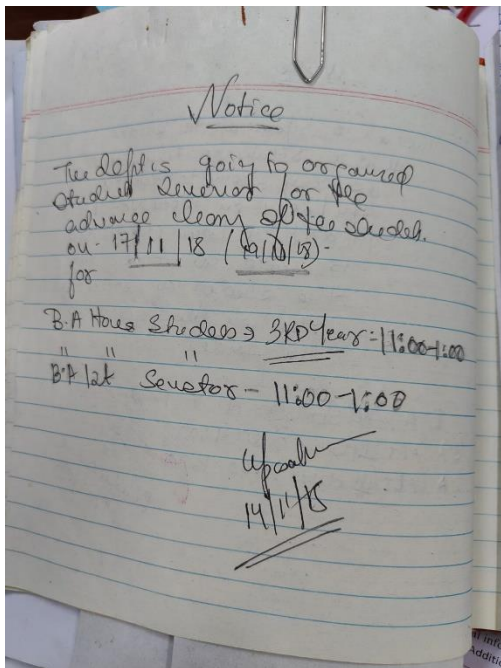 Notice
The deptt is going to organised
student seminar for the
advance of the
on 17/11/18 (19/11/18)
for
B.A Hones 3RD Year - 11:00-1:00
" " "
B.A 1st - 11:00-1:00
14/11/18